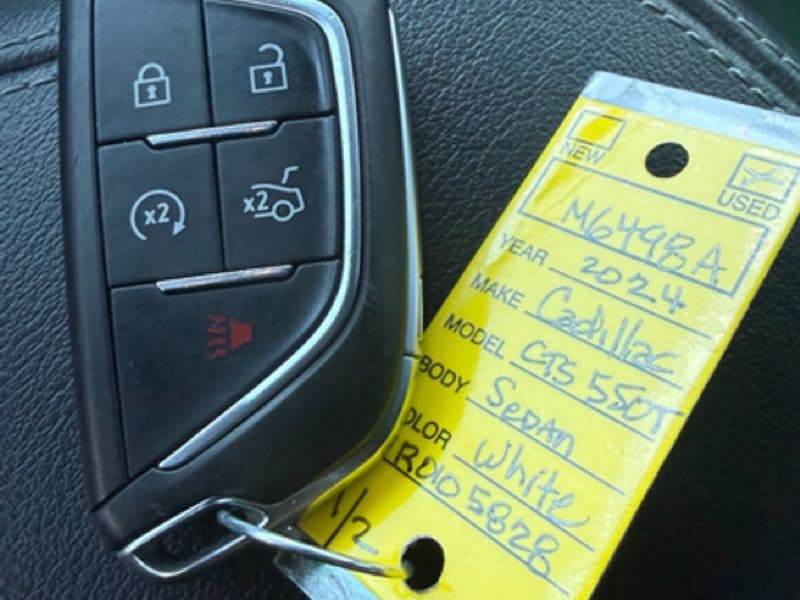 x2
x2
NEW
USED
M6498A
YEAR 2024
MAKE Cadillac
MODEL CTS 550T
BODY SEDAN
OLOR White
R0105828
1/2